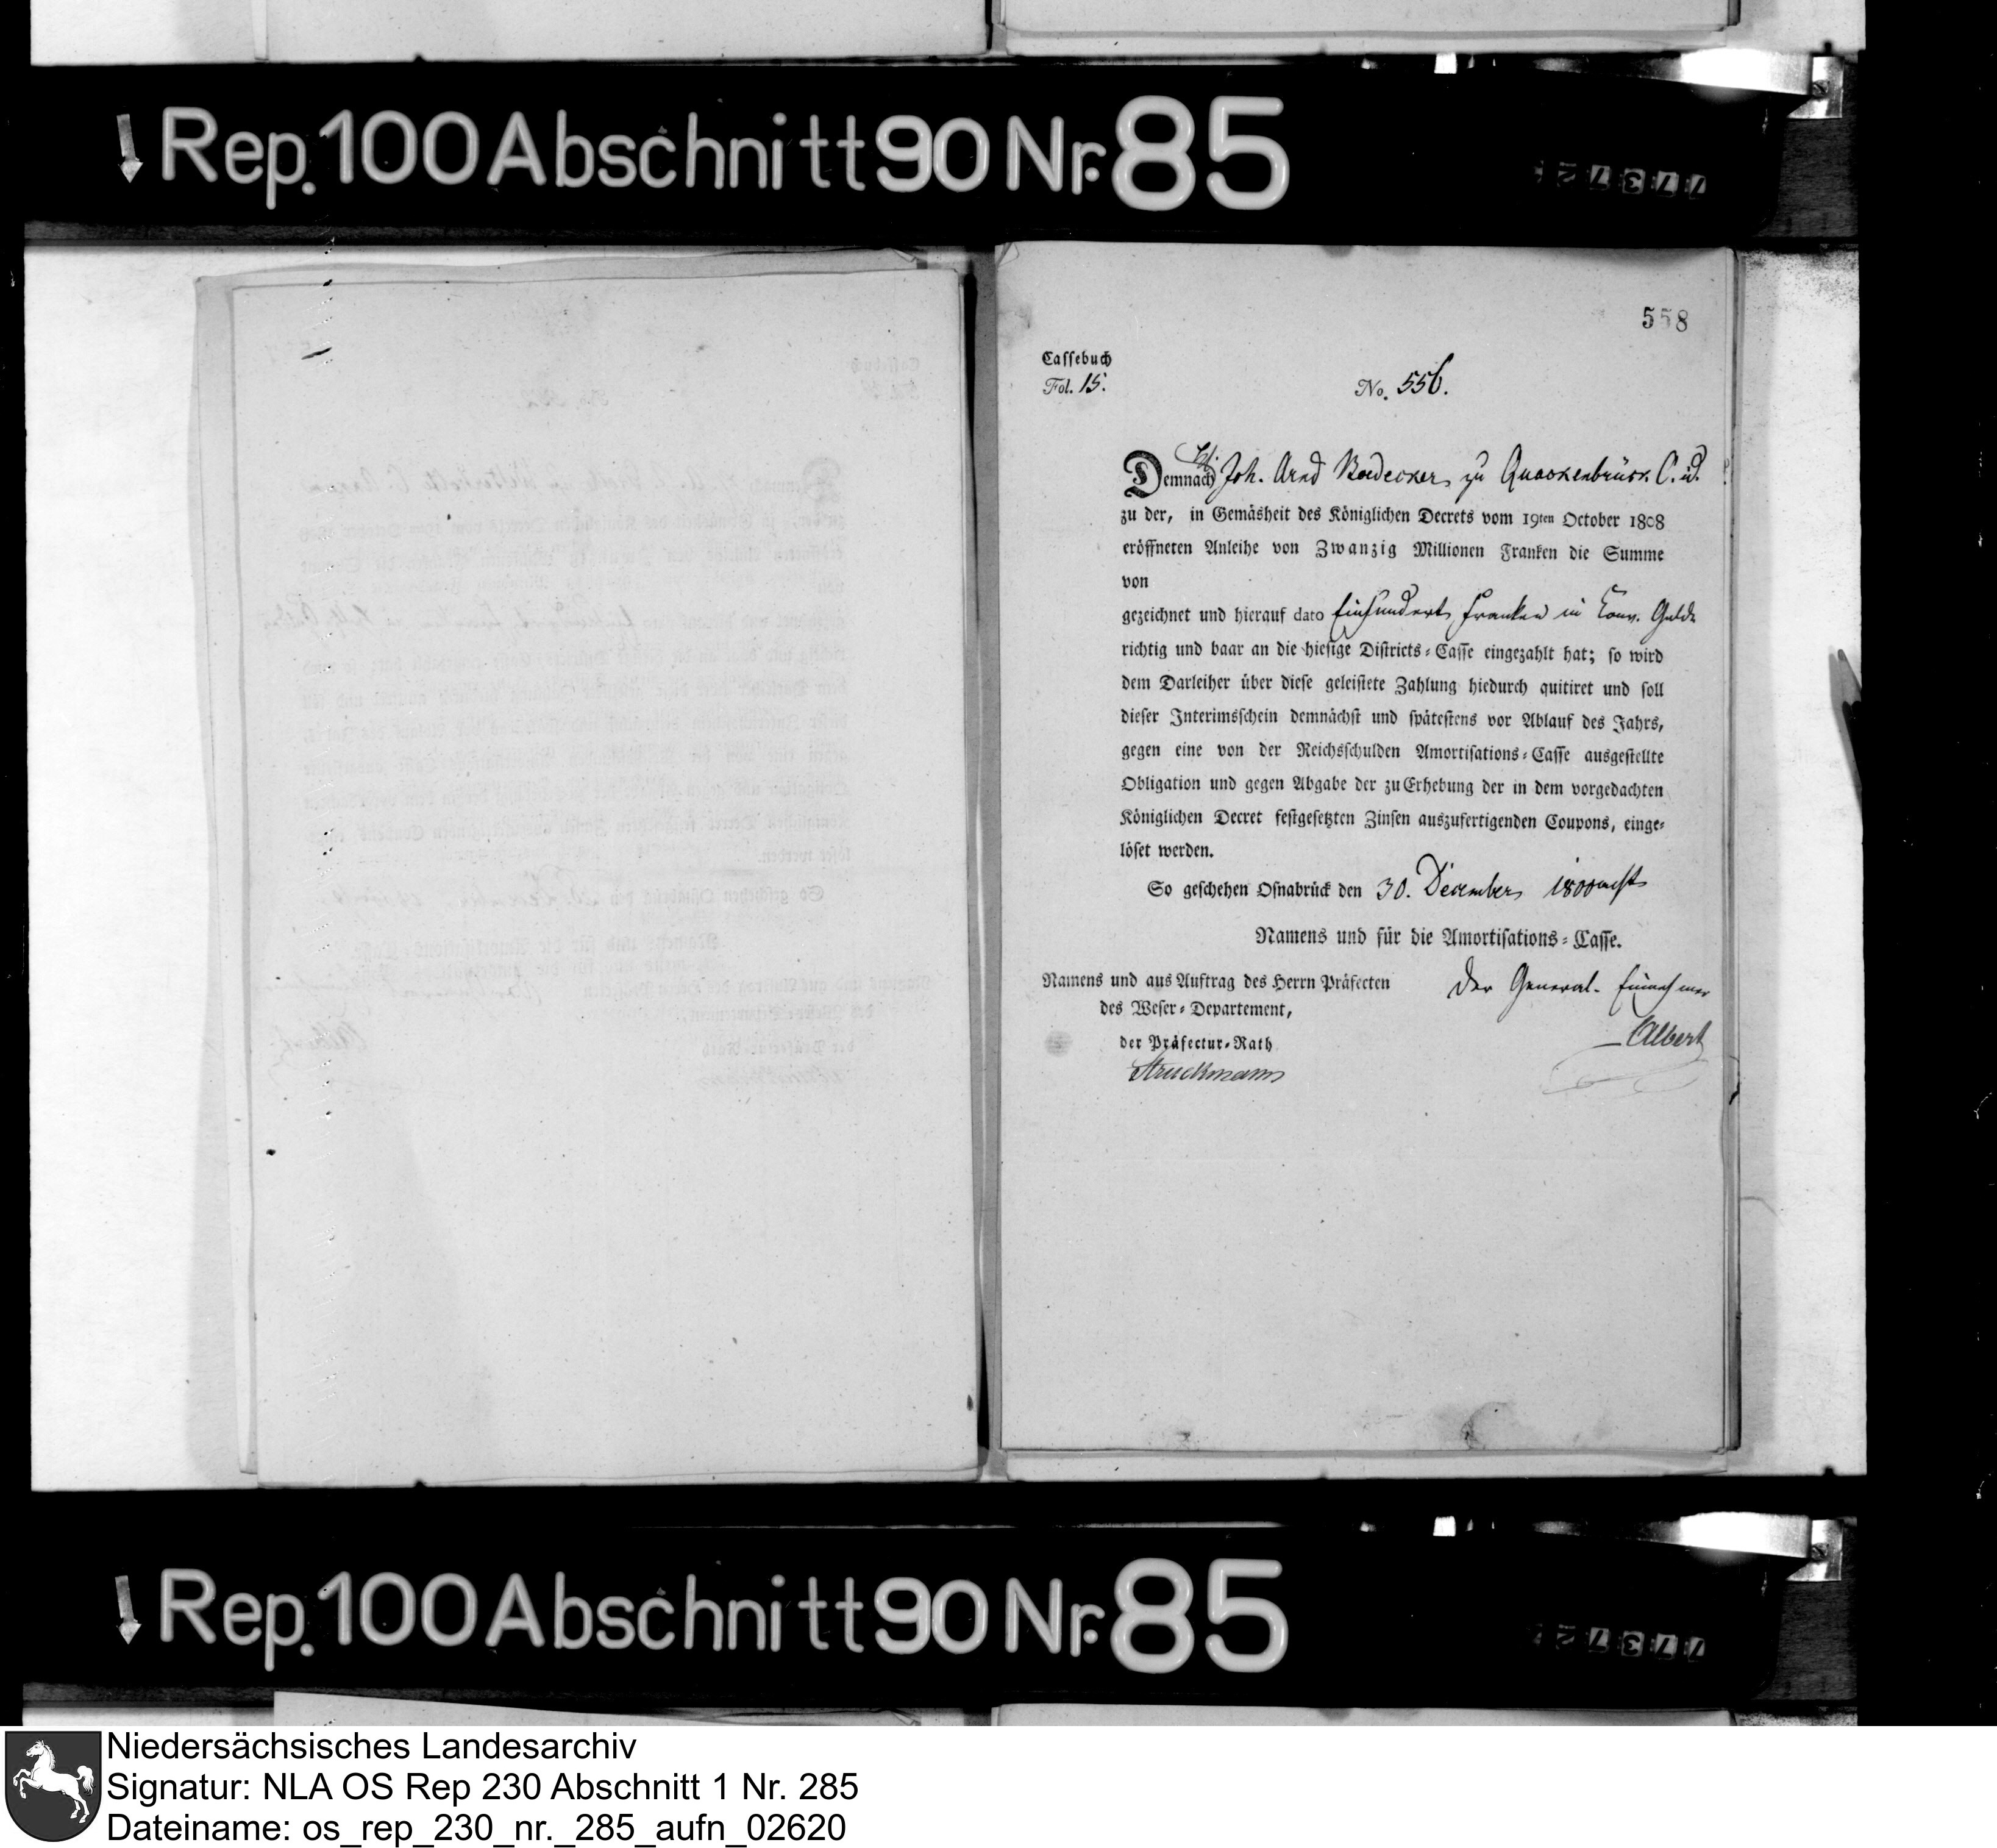 Rep. 100 Abschnitt 90 Nr. 85
558
Cassebuch
Fol. 15.
No. 556.
Demnach H. Joh. Arnd Bödecker zu Quackenbrück C. id.
zu der, in Gemäsheit des Königlichen Decrets vom 19ten October 1808
eröffneten Anleihe von Zwanzig Millionen Franken die Summe
von
gezeichnet und hierauf dato Einhundert Franken in Conv. Gelde
richtig und baar an die hiesige Districts-Casse eingezahlt hat; so wird
dem Darleiher über diese geleistete Zahlung hiedurch quitiret und soll
dieser Interimsschein demnächst und spätestens vor Ablauf des Jahrs,
gegen eine von der Reichsschulden Amortisations-Casse ausgestellte
Obligation und gegen Abgabe der zu Erhebung der in dem vorgedachten
Königlichen Decret festgesetzten Zinsen auszufertigenden Coupons, einge-
löset werden.
So geschehen Osnabrück den 30. December 1800acht
Namens und für die Amortisations-Casse.
Namens und aus Auftrag des Herrn Präfecten
des Weser-Departement,
der Präfectur-Rath
Struckmann
Der General-Einnehmer
Albert
Rep. 100 Abschnitt 90 Nr. 85
Niedersächsisches Landesarchiv
Signatur: NLA OS Rep 230 Abschnitt 1 Nr. 285
Dateiname: os_rep_230_nr._285_aufn_02620